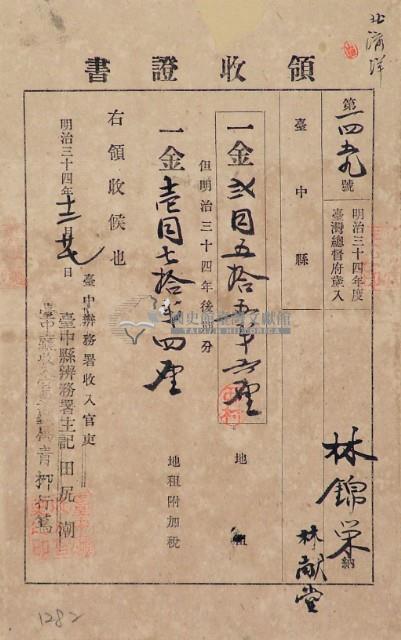 北溝洋
領收證書
第一四五九號
明治三十四年度
臺灣總督府歲入
臺中縣
林錦栄納
林献堂
一金弐円五拾五銭六厘
地租
但明治三十四年後期分
一金壱円七拾弐銭四厘
地租附加稅
右領收候也
明治三十四年十二月廿七日
臺中辨務署收入官吏
臺中縣辨務署主記田尻潮
1282